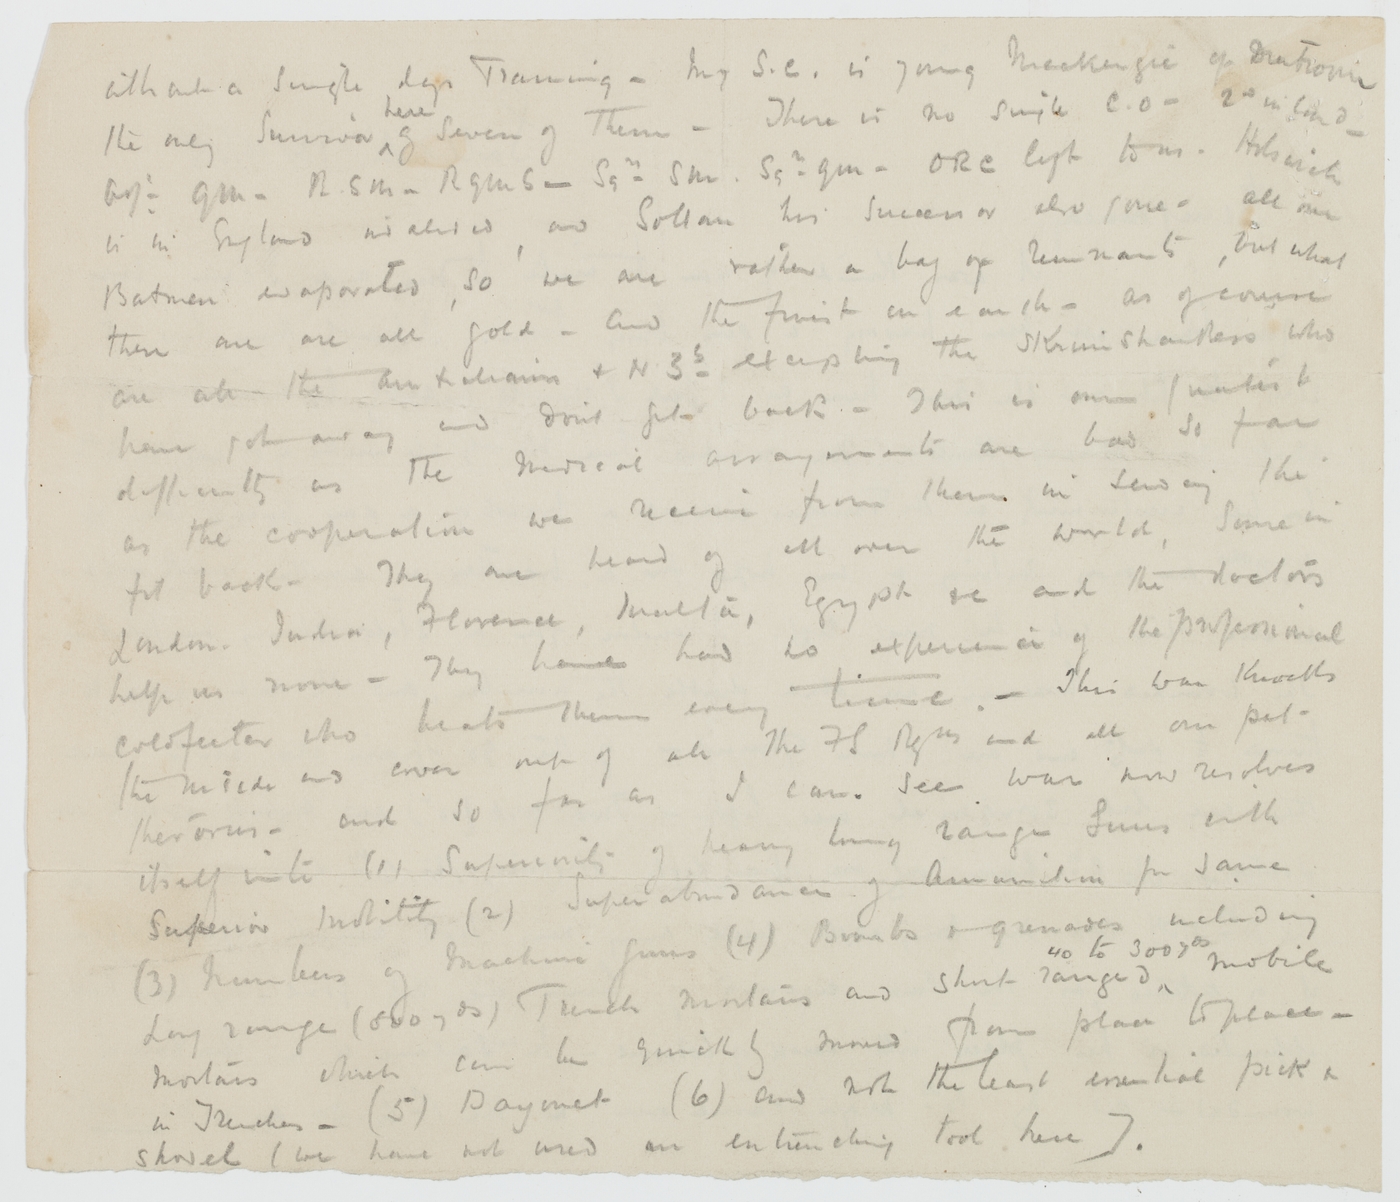 without a single days Training - My S.C. is young Mackenzie of
the only Survivor here of Seven of Them - There is no single C.O - 2nd in Cmd -
Adjt - QM - R.S.M - RQMS - Sqn SM. Sqn QM - ORC left to us.
is in England invalided, and Soltau his Successor also gone - all our
Batmen evaporated, so we are rather a bag of remnants, but what
there are are all gold - And the finest on earth - as of course
are all the Australians & N Zs excepting the Skrimshankers who
have got away and dont get back - This is our greatest
difficulty as the Medical arrangements are bad so far
as the cooperation we receive from them in sending the
fit back - They are heard of all over the world, Some in
London. India, Florence, Malta, Egypt &c and the doctors
help us none - They have had no experience of the professional
coldfeeter who beats them every time. - This war Knocks
the inside and cover out of all The FS Regns and all our pet
theories - and so far as I can see war now resolves
itself into (1) Superiority of heavy long range Guns with
Superior Mobility (2) Superabundance of Ammunition for same
(3) Numbers of Machine Guns (4) Bombs & grenades including
Long range (800 yds) Trench Mortars and short ranged 40 to 300 yds mobile
Mortars which can be quickly moved from place to place -
in Trenches - (5) Bayonet (6) and not the least essential pick &
shovel (we have not used an entrenching tool here).